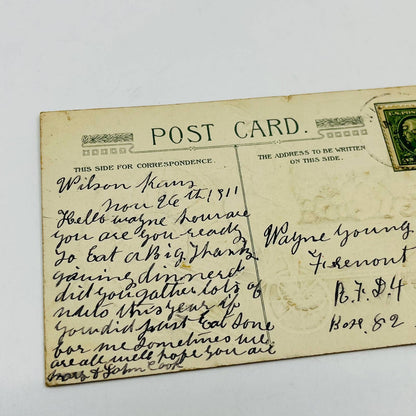 POST CARD.
THIS SIDE FOR CORRESPONDENCE.
THE ADDRESS TO BE WRITTEN
ON THIS SIDE.
Wilson Kans
Nov 26th, 1911
Hello Wayne how are
you are you ready
to Eat a Big Thanks
giving dinner
did you gather lots of
nuts this year if
you did just Eat Some
for me sometimes we
are all well hope you are
John Cook
Wayne Young
Fremont
R.F.D 4
Box. 82